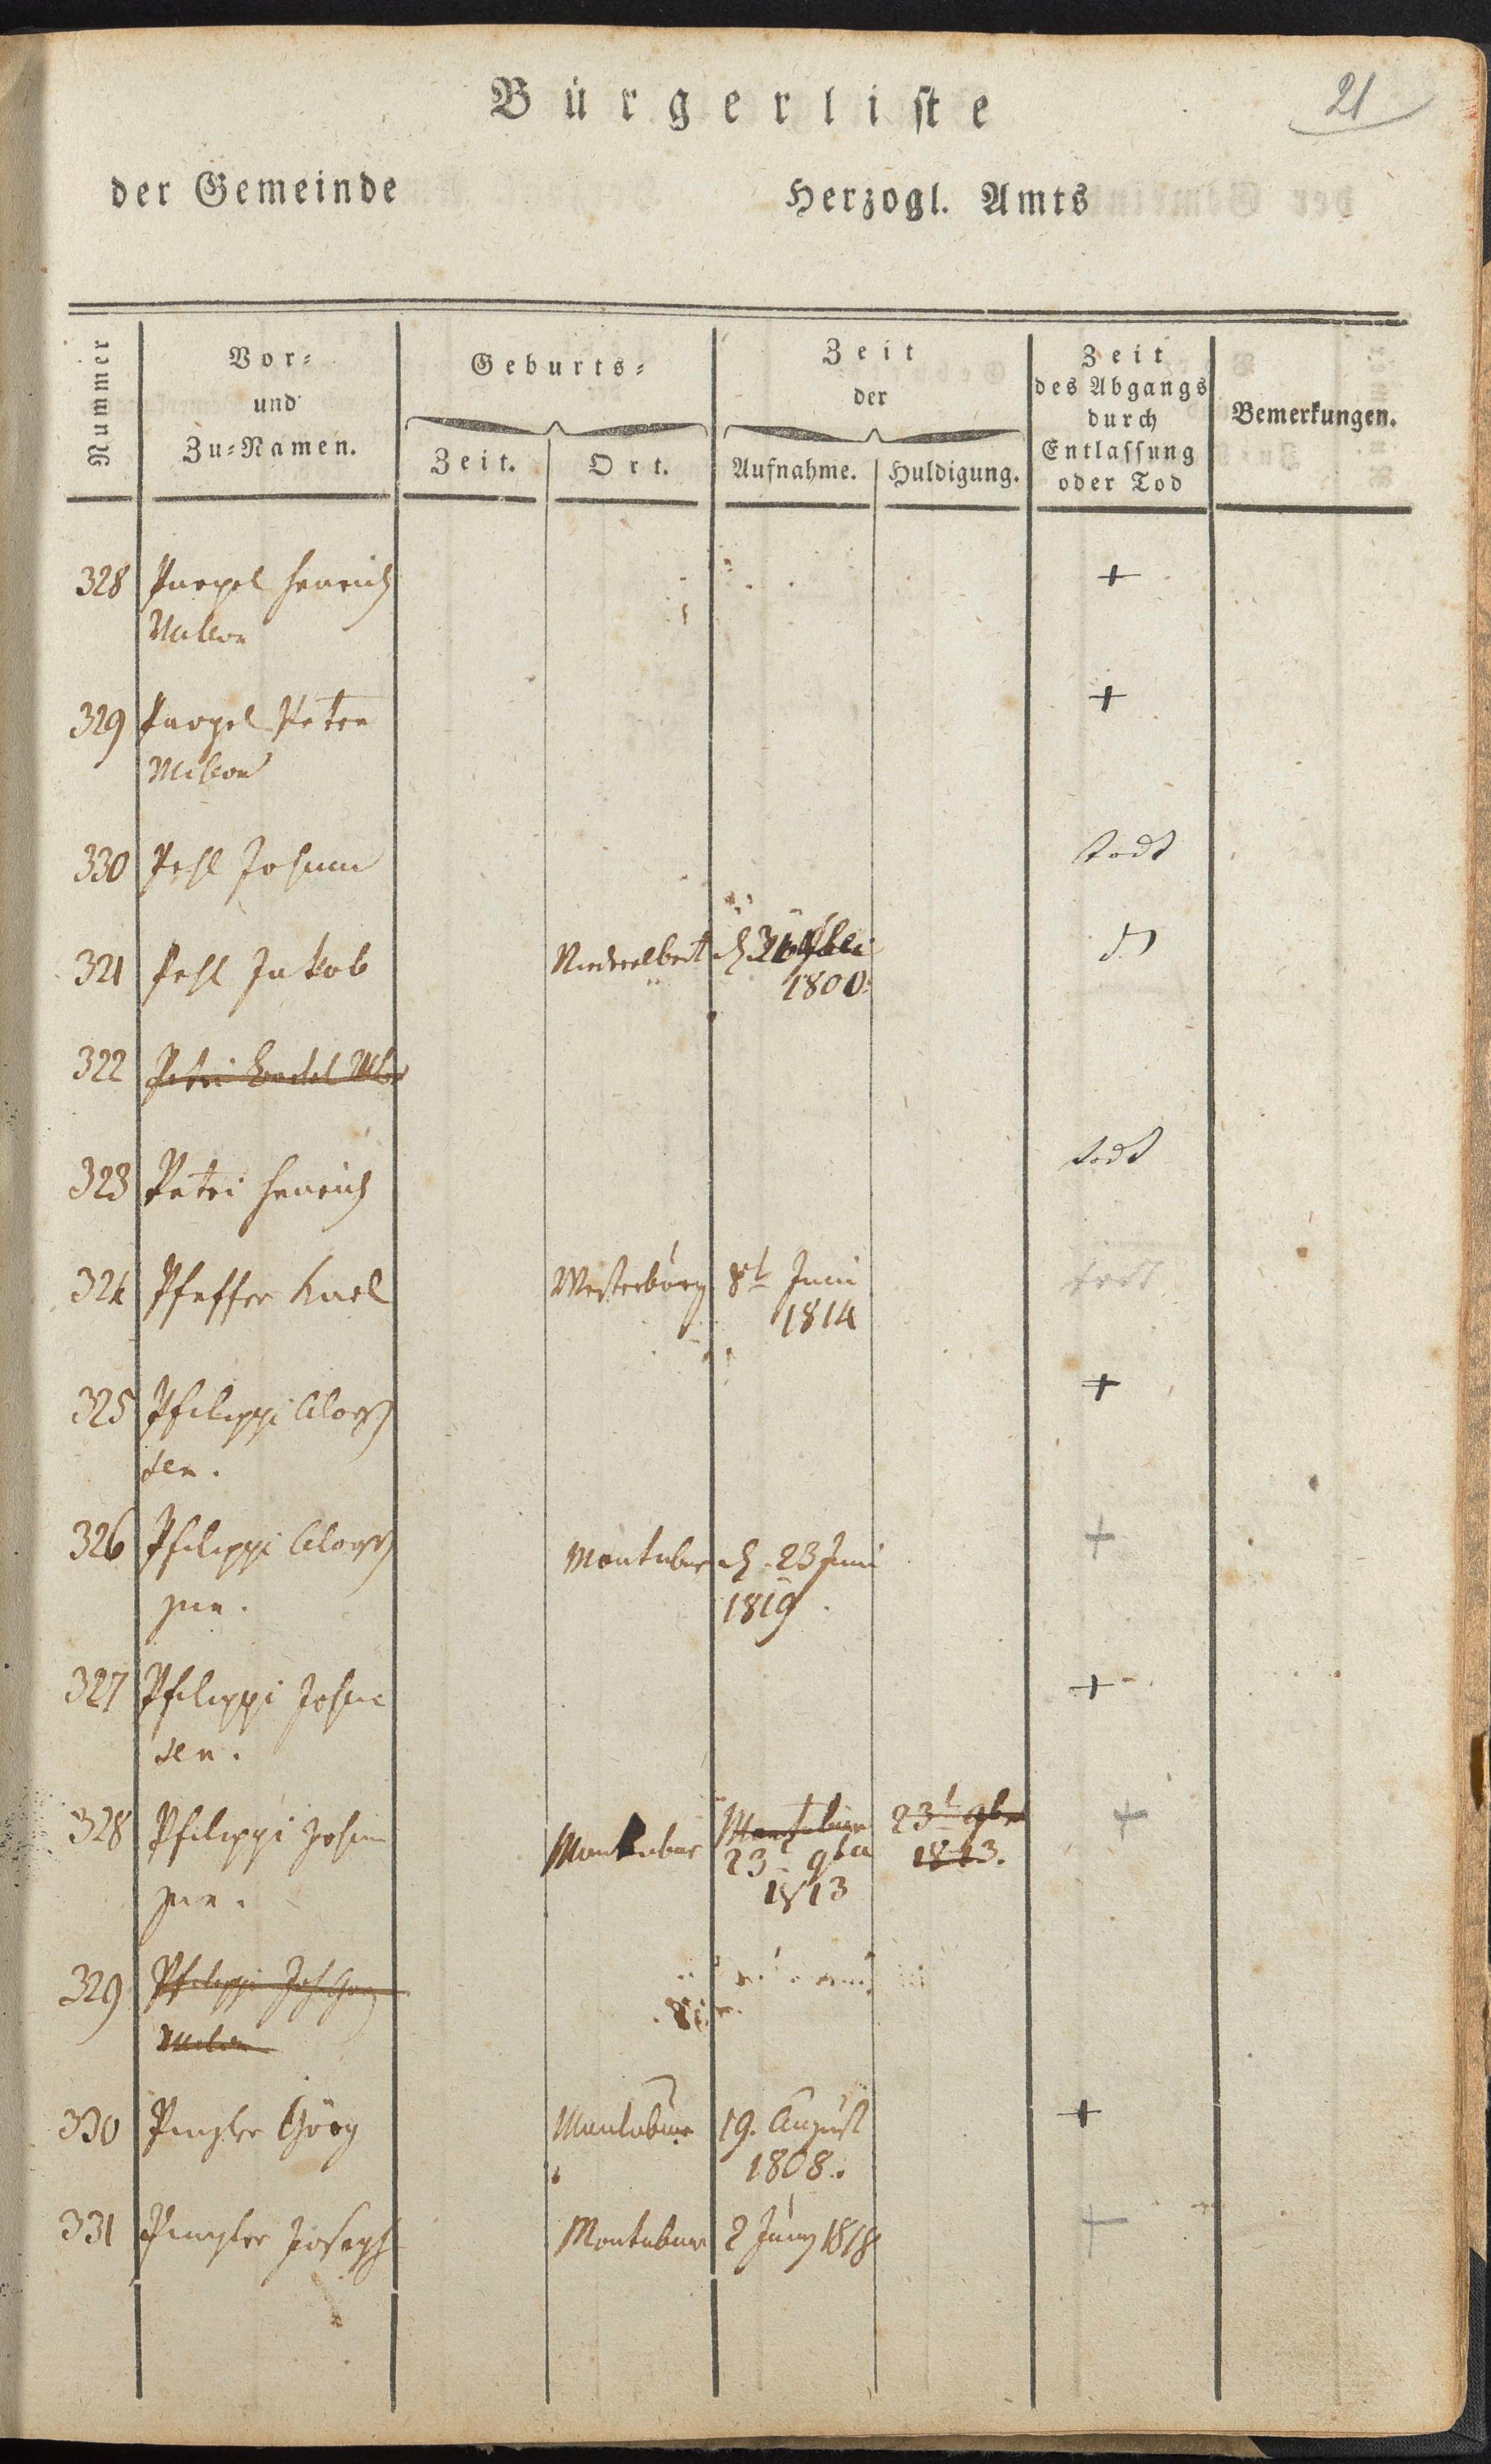 21
Bürgerliste
der Gemeinde Herzogl. Amts
Nummer
Vor-
und
Zu-Namen.
Geburts-
Zeit. Ort.
Zeit
der
Aufnahme. Huldigung.
Zeit
des Abgangs
durch
Entlassung
oder Tod
Bemerkungen.
328 Henrich +
329 Peter +
330 Pehl Johann todt
321 Pehl Jakob Niederelbert
1800.
322 Petri
323 Petri Henrich todt
324 Pfeffer Karl Westerburg 8t Juni todt
1814
325 Philippi Aloys +
sen.
326 Philippi Aloys Montabur d. 23 Juni +
jun. 1819.
327 Philippi Johan +
sen.
328 Philippi Johan Montabur Montabur 23t 9br +
23t 9br 1813.
jun. 1813
329 Philippi
330 Pingler Görg Montabur 19. August +
1808.
331 Pingler Joseph Montabur 2 Juny 1818 +